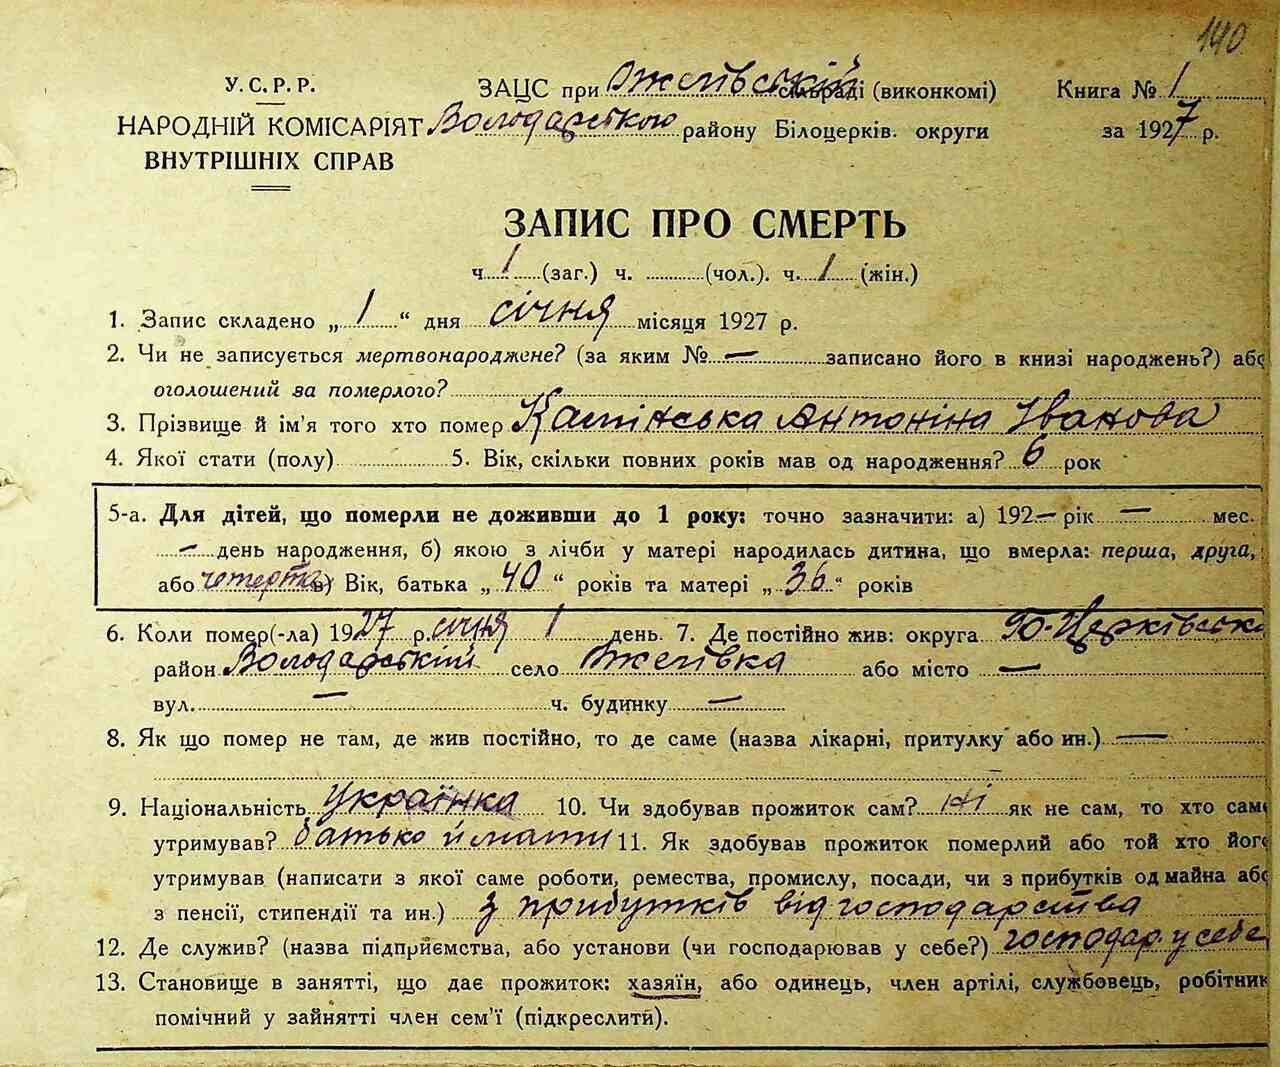 140
У. С. Р. Р.
НАРОДНІЙ КОМІСАРІЯТ
ВНУТРІШНІХ СПРАВ
ЗАЦС при Ожегівській сільраді (виконкомі)
Володарською району Білоцерків. округи
Книга № 1
за 1927 р.
ЗАПИС ПРО СМЕРТЬ
ч. 1 (заг.) ч. (чол.). ч. 1 (жін.)
1. Запис складено „ 1 “ дня січня місяця 1927 р.
2. Чи не записується мертвонароджене? (за яким № — записано його в книзі народжень?) або
оголошений за померлого?
3. Прізвище й ім'я того хто помер Антоніна Іванова
4. Якої стати (полу) 5. Вік, скільки повних років мав од народження? 6 рок
5-а. Для дітей, що померли не доживши до 1 року: точно зазначити: а) 192— рік — мес.
— день народження, б) якою з лічби у матері народилась дитина, що вмерла: перша, друга,
або четерта в) Вік, батька „ 40 “ років та матері „ 36 “ років
6. Коли помер(-ла) 1927 р. січня 1 день. 7. Де постійно жив: округа Б-Церківська
район Володарський село Ожегівка або місто —
вул. — ч. будинку —
8. Як що помер не там, де жив постійно, то де саме (назва лікарні, притулку або ин.) —
9. Національність українка 10. Чи здобував прожиток сам? ні як не сам, то хто саме
утримував? батько й мати 11. Як здобував прожиток померлий або той хто його
утримував (написати з якої саме роботи, ремества, промислу, посади, чи з прибутків од майна або
з пенсії, стипендії та ин.) з прибутків від господарства
12. Де служив? (назва підприємства, або установи (чи господарював у себе?) господар. у себе
13. Становище в занятті, що дає прожиток: хазяїн, або одинець, член артілі, службовець, робітник
помічний у зайнятті член сем'ї (підкреслити).